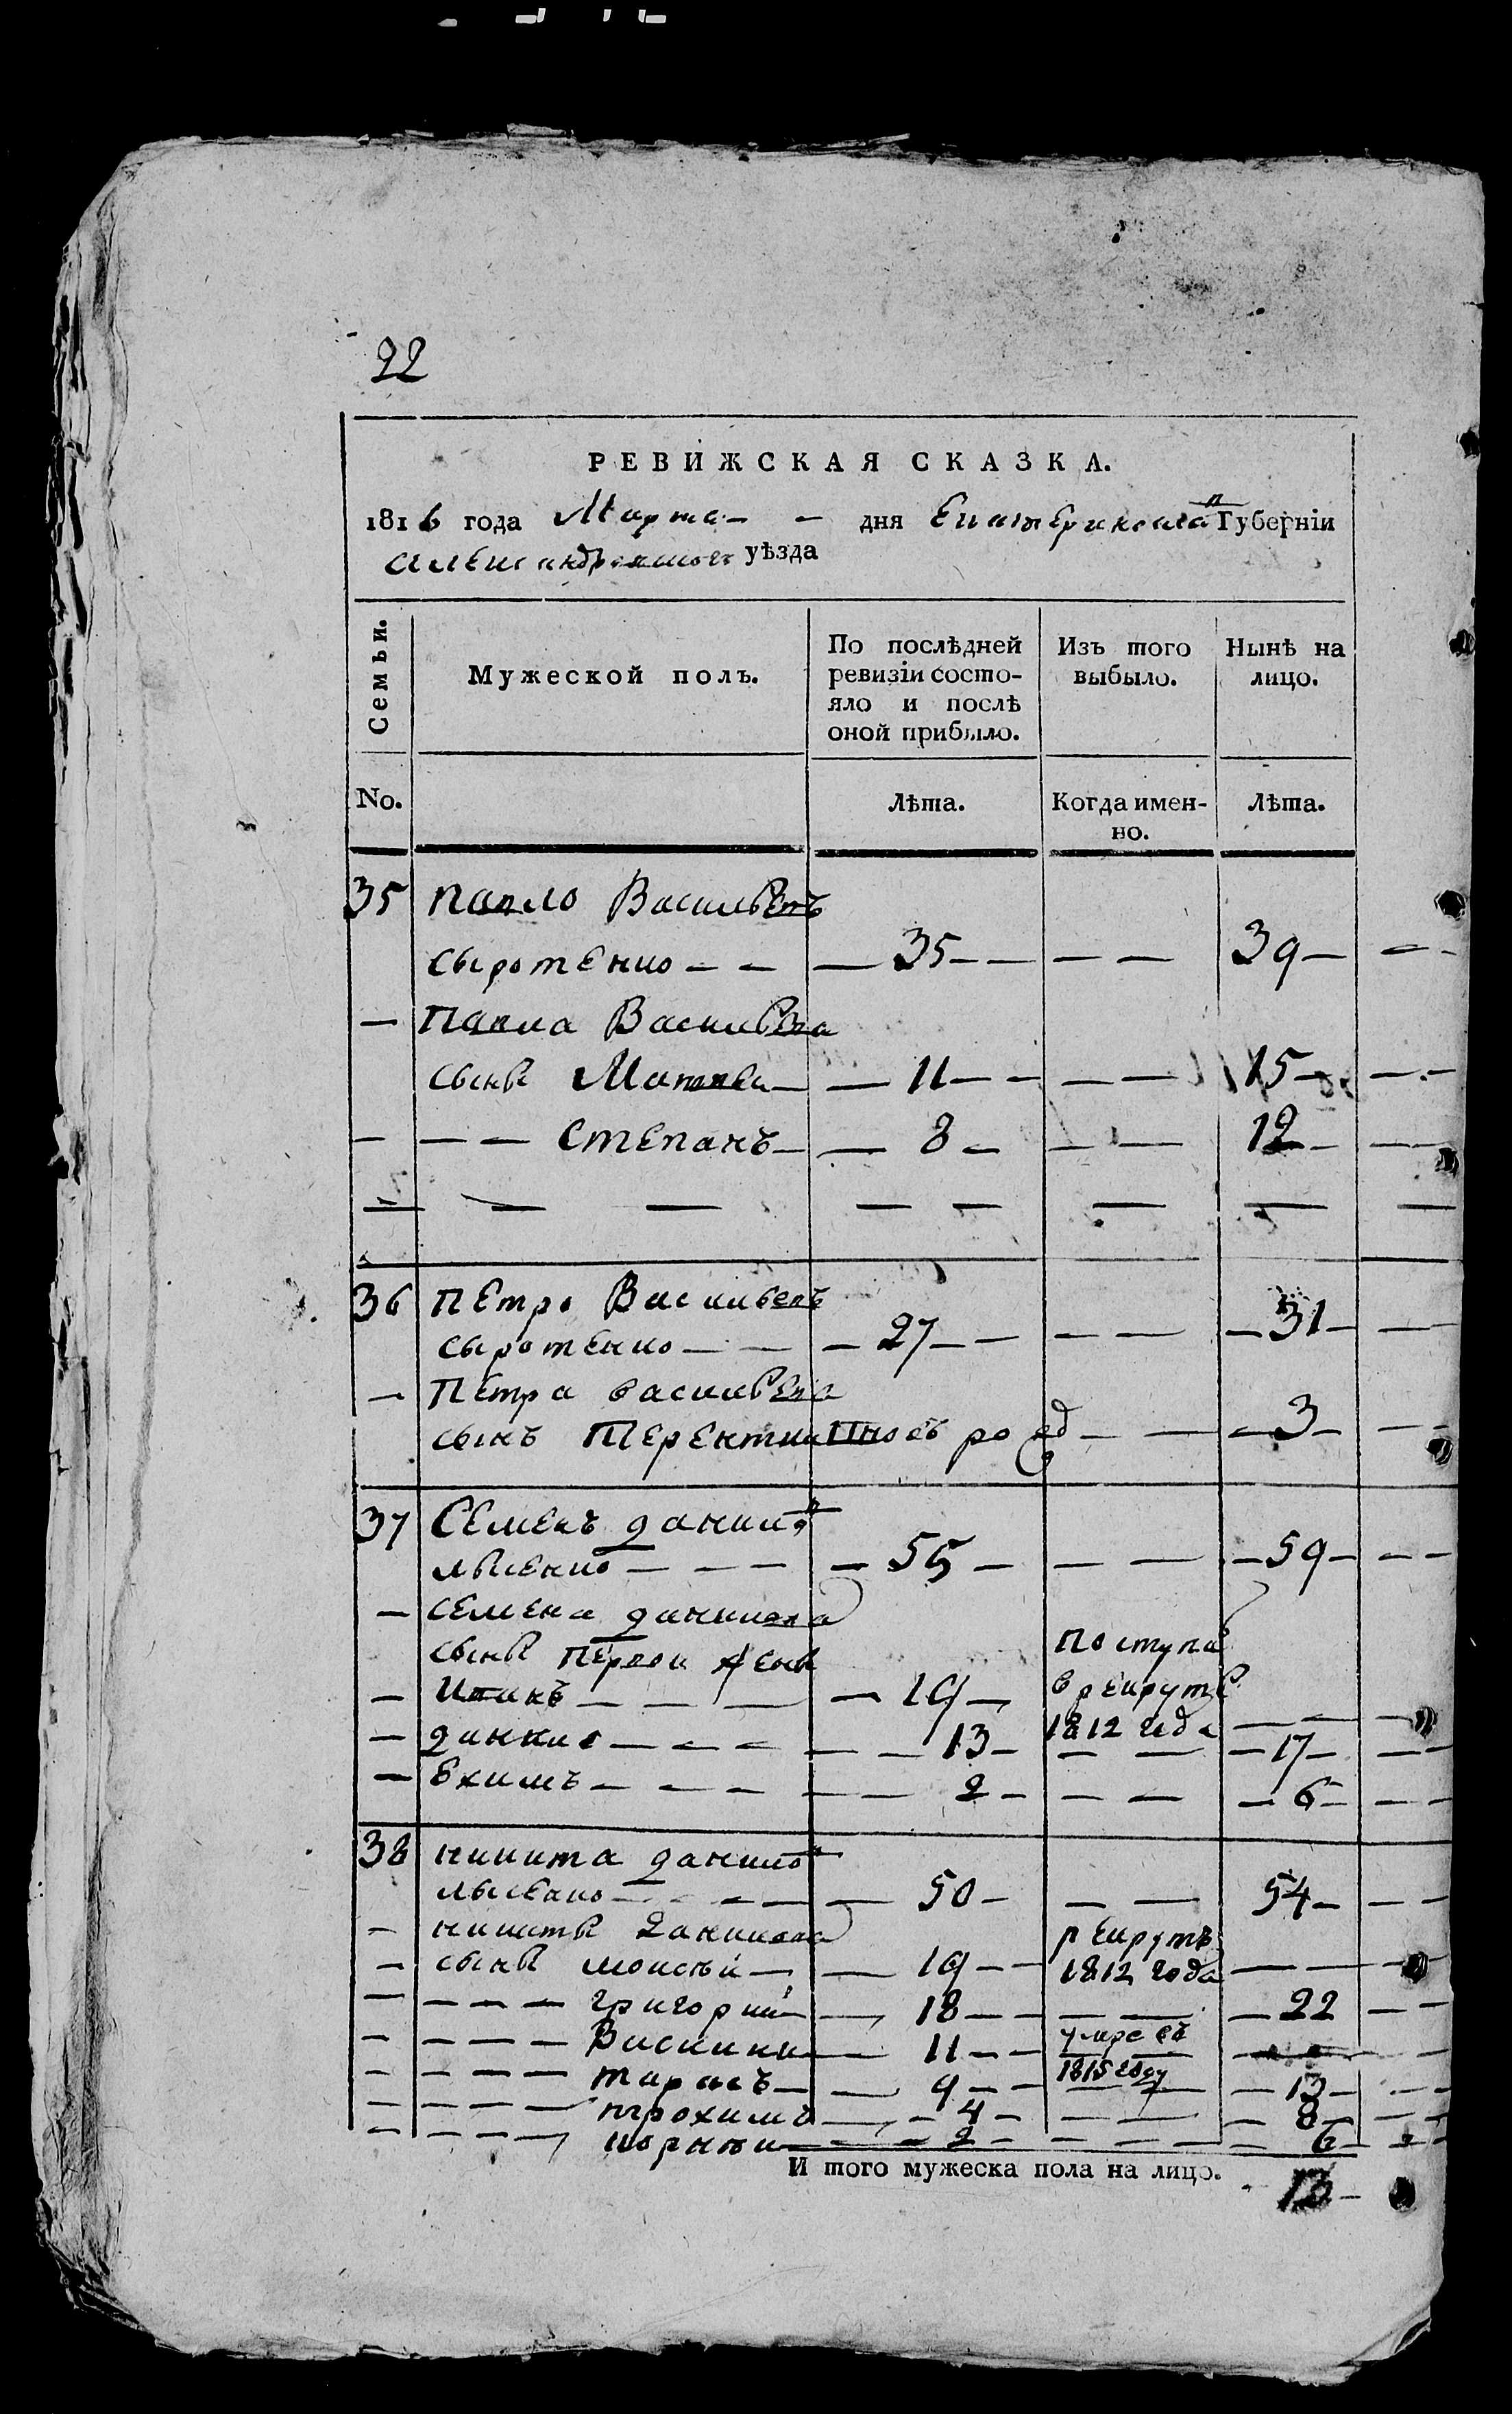 22
РЕВИЖСКАЯ СКАЗКА.
1816 года Марта дня Екатеринославск Губерніи
Александрынского уѣзда
Семьи. Мужеской полъ. По послѣдней ревизіи состояло и послѣ оной прибыло. Изъ того выбыло. Нынѣ на лицо.
No. Лѣта. Когда именно. Лѣта.
35 Павло Васильевъ
Сыротенко — — — 35 — — — — 39 — — —
— Павла Васильева
сыны Матвѣй — — 11 — — — — 15 — — —
— — — Степанъ — — 8 — — — 12 — —
— — — — — — — —
36 Петро Васильевъ
Сыротенко — — — 27 — — — — — 31 — —
— Петра васильева
сынъ Терентий вновь рожд — — — 3 — —
37 Семенъ данило
лысенко — — — — 55 — — — — 59 — — —
— семена данилова
сыны первой жены Поступи
— Иванъ — — — — 19 — в рекруты
1812 года — — —
— данило — — — — — 13 — — — — 17 — — —
— Ехимъ — — — — — 2 — — — — 6 — — —
38 никита данило
лысенко — — — — — 50 — — — 54 — — —
— никиты данилова рекрутъ
— сыны моисѣй — — 19 — — 1812 года — — —
— — — — григорий — 18 — — — — 22 — —
— — — — Василий — 11 — — умре въ
1815 году — —
— — — — тарасъ — — 9 — — — — — 13 — — —
— — — — трохимъ — — 4 — — — — 8 — — —
— — — — корнѣй — — 2 — — — — — 6 — — —
И того мужеска пола на лицо. 13 —